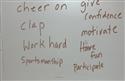 cheer on
give
confidence
clap
motivate
Work hard
Have
fun
Sportsmanship
Participate